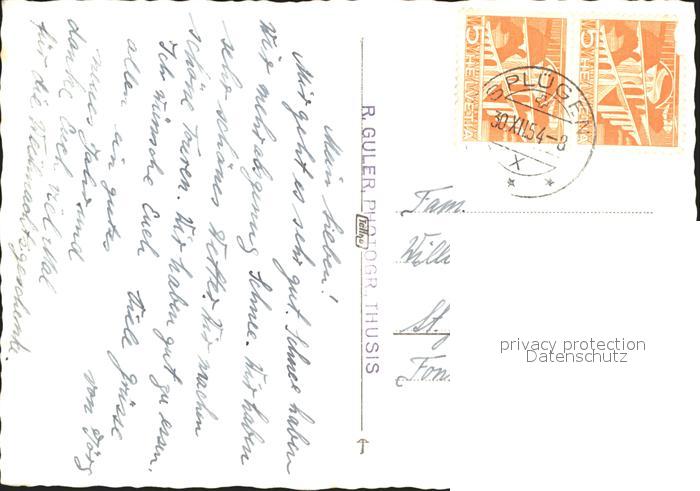 Mein Lieben!
Mir geht es sehr gut. Schnee haben
wir mehr als genug Schnee. Wir haben
sehr schönes Wetter. Wir machen
schöne Touren. Wir haben gut zu essen.
Ich wünsche Euch
allen ein gutes
neues Jahr und
danke Euch viel Mal
für die Weihnachtsgeschenke.
Viele Grüsse
von Jörg
R. GULER, PHOTOGR., THUSIS
5 HELVETIA
5 HELVETIA
SPLÜGEN
30.XII.54-8
X
Fam.
Will
St.
Fon
privacy protection
Datenschutz